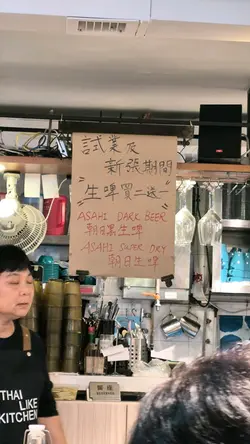 試業及
新張期間
生啤買一送一
ASAHI DARK BEER
朝日黑生啤
ASAHI SUPER DRY
朝日生啤
THAI
LIKE
KITCHEN